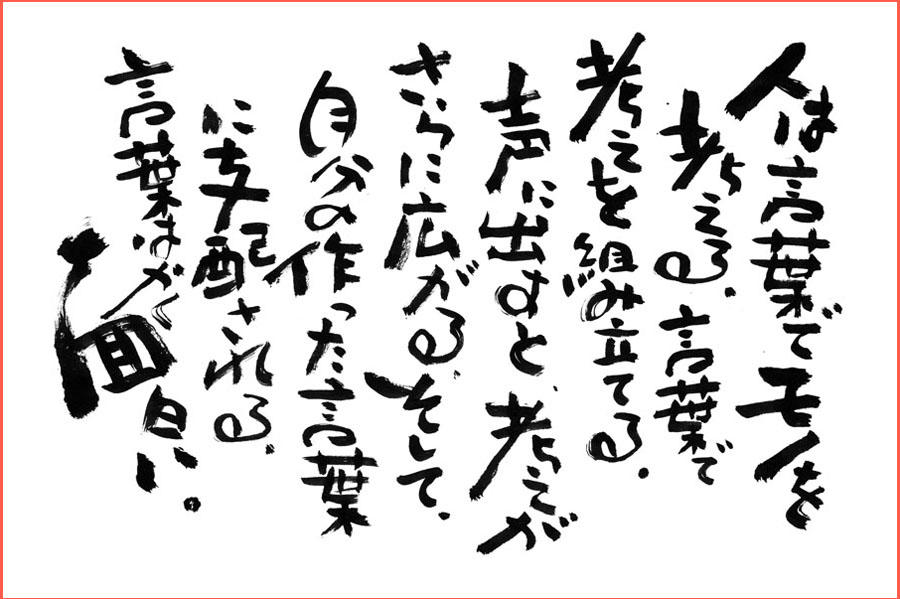 人は言葉でモノを
考える。言葉で
考えを組み立てる。
声に出すと、考えが
さらに広がる。そして、
自分の作った言葉
に支配される。
言葉はが面白い。